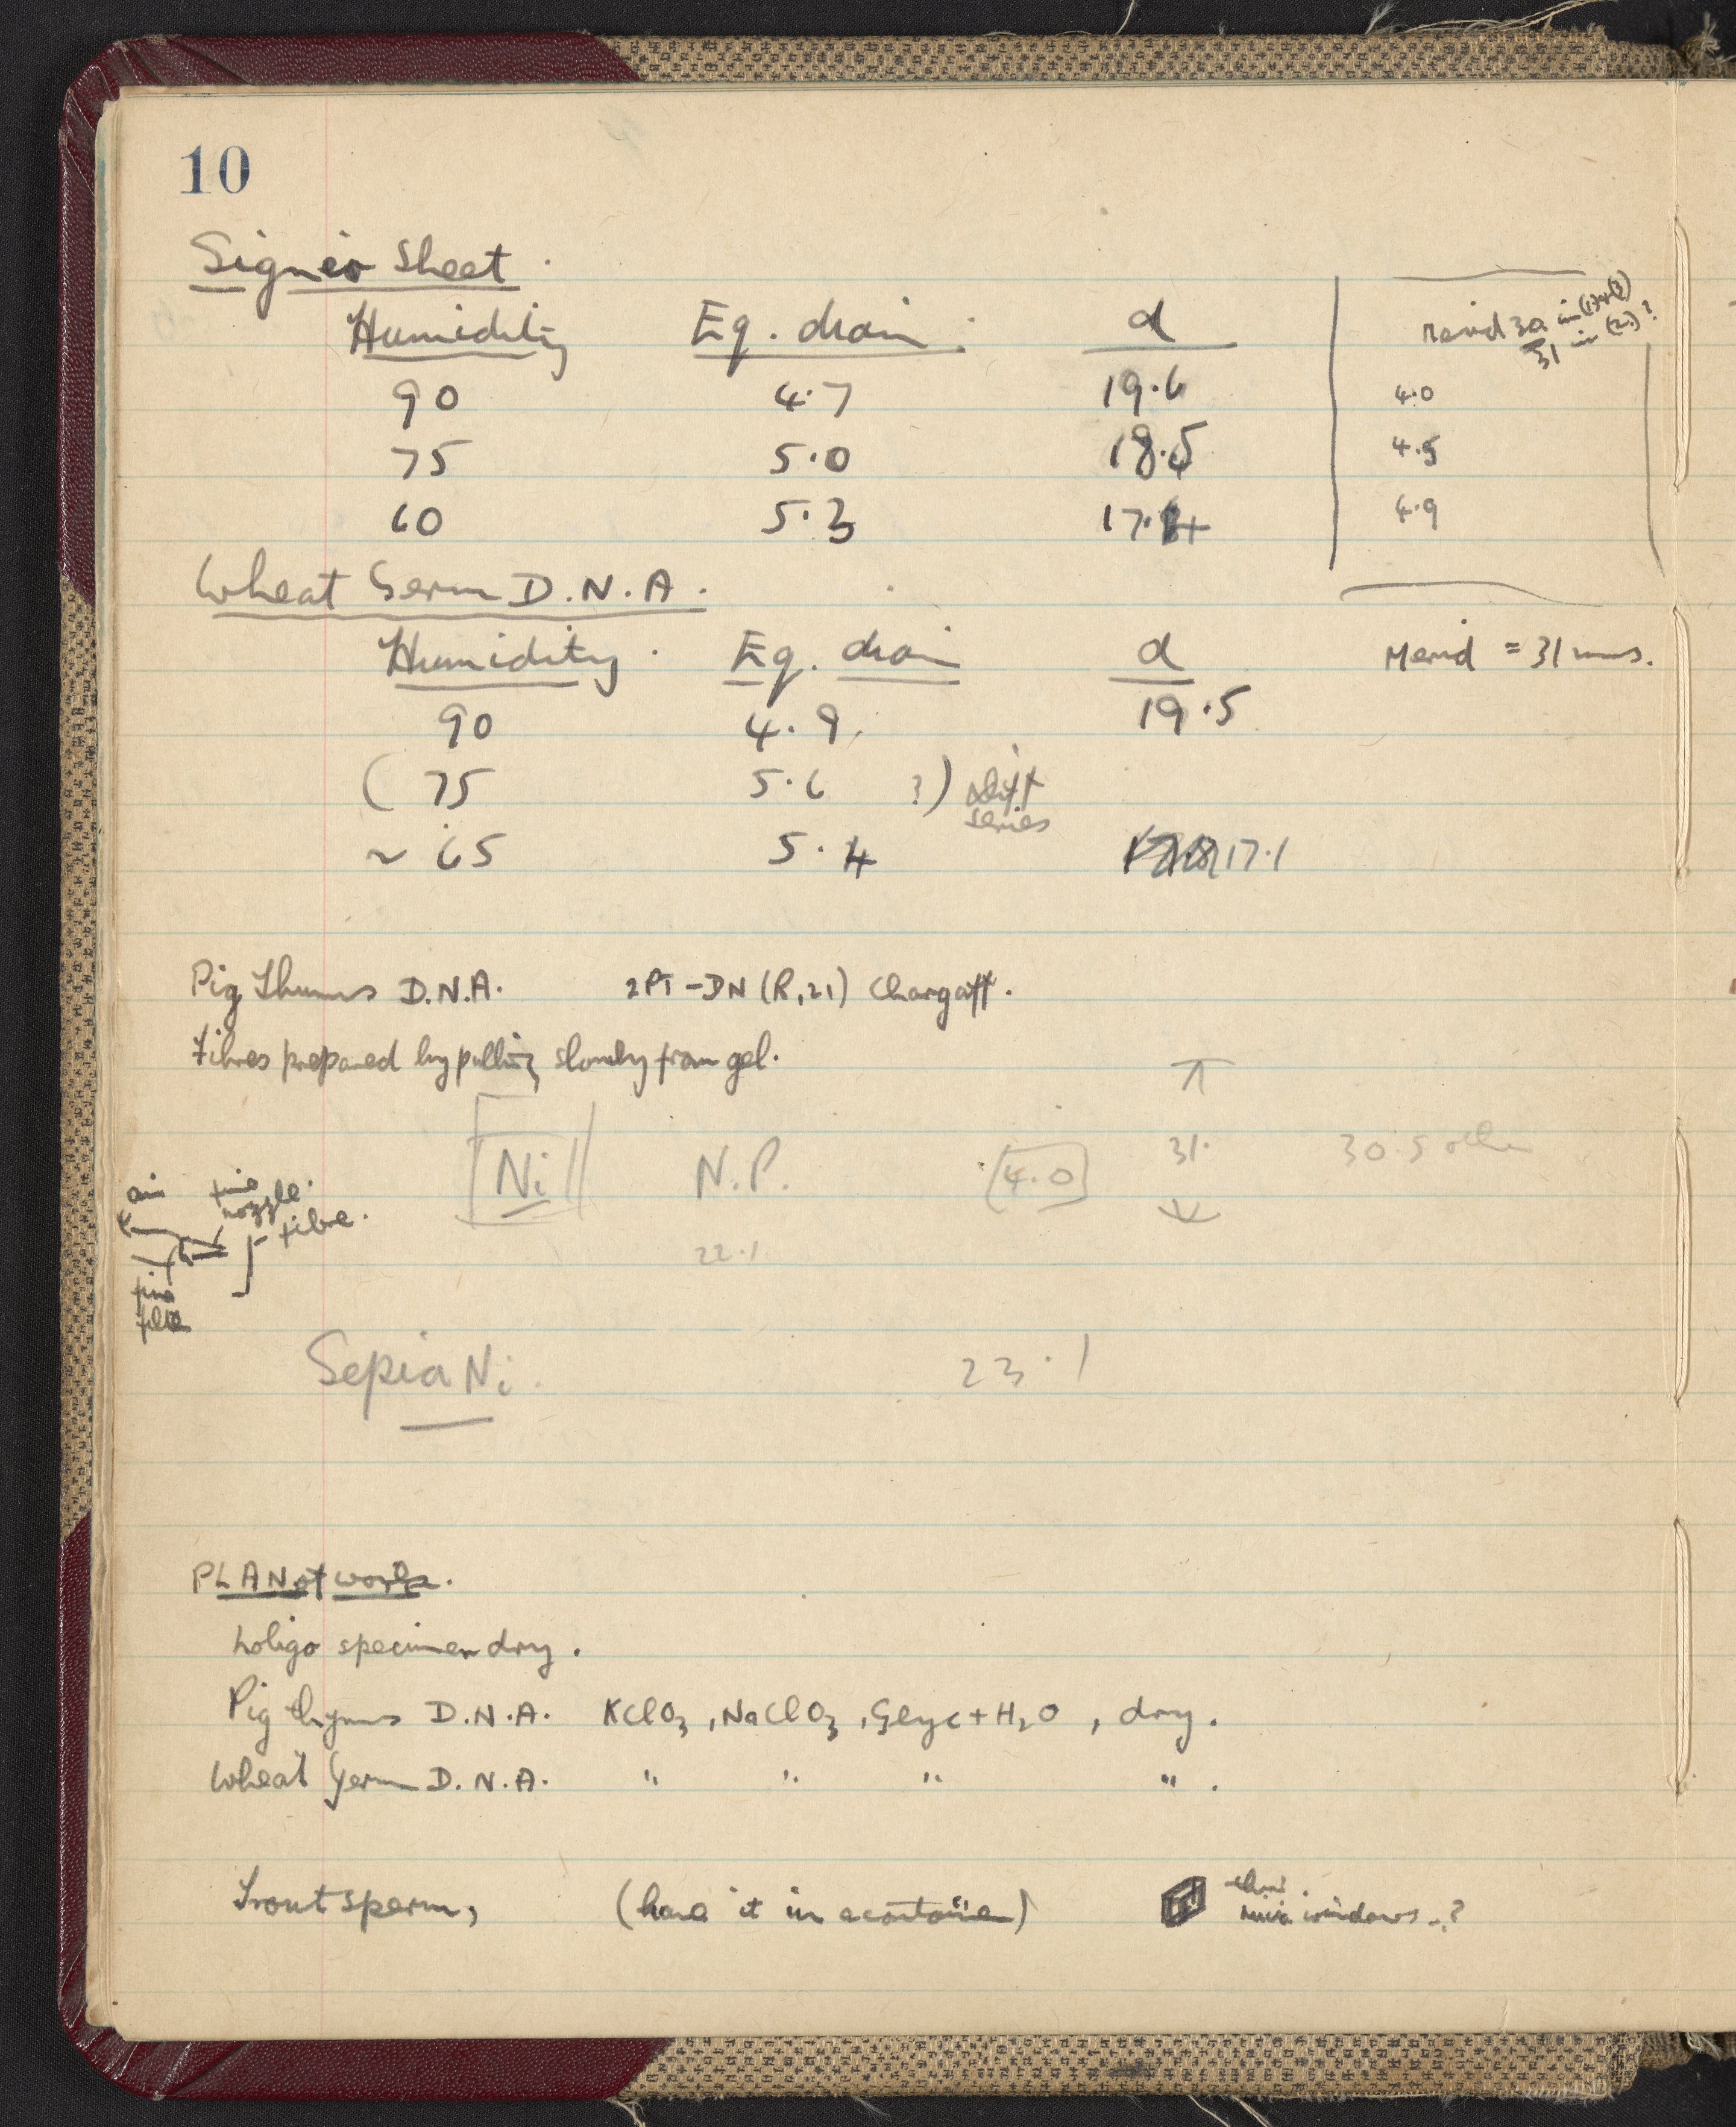 10
Signer Sheet.
Humidity Eq. diam. d Merid 30 in
31 in (2)?
90 4.7 19.6 4.0
75 5.0 18.5 4.5
60 5.3 17.4 4.9
Wheat Germ D.N.A.
Humidity. Eq. diam d Merid = 31 mms.
90 4.9 19.5
( 75 5.6 ?) diff
series
~ 65 5.4 17.1
Pig Thymus D.N.A. 2PT-DN (R,21) Chargaff.
Fibres prepared by pulling slowly from gel.
Ni N.P. 4.0 31. 30.5 other
22.1
air fine
nozzle.
fibre.
fine
fibre
Sepia Ni. 23.1
PLAN of work.
Loligo specimen dry.
Pig thymus D.N.A. KClO3, NaClO3, Glyc + H2O, dry.
Wheat Germ D.N.A. " " " ".
Trout sperm, (have it in a container) thin
mica windows..?